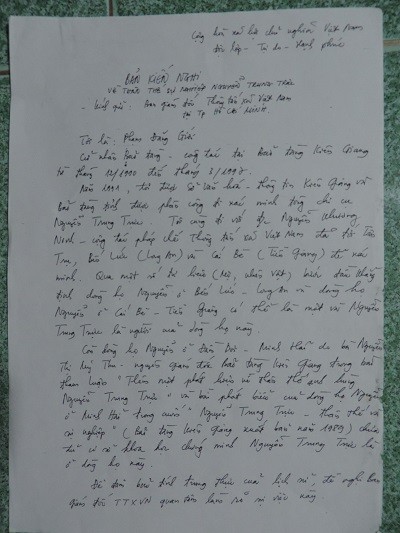 Cộng hòa xã hội chủ nghĩa Việt Nam
Độc lập - Tự do - Hạnh phúc
BẢN KIẾN NGHỊ
VỀ THÂN THẾ SỰ NGHIỆP NGUYỄN TRUNG TRỰC
- Kính gửi: Ban giám đốc Thông tấn xã Việt Nam
tại Tp HỒ CHÍ MINH.
Tôi là: Phan Đăng
Cử nhân Bảo tàng - công tác tại Bảo tàng Kiên Giang
từ tháng 12/1980 đến tháng 8/1997.
Năm 1991, tôi được Sở Văn hoá - Thông tin Kiên Giang và
Bảo tàng tỉnh được phân công đi xác minh dòng chi cụ
Nguyễn Trung Trực. Tôi cùng đi với Nguyễn Khương,
Ninh - công tác pháp chế Thông tấn xã Việt Nam đã tới Tân
Trụ, Bến Lức (Long An) và Cái Bè (Tiền Giang) để xác
minh. Qua một số tư liệu (Mộ, nhân vật) bước đầu khẳng
định dòng họ Nguyễn ở Bến Lức - Long An và dòng họ
Nguyễn ở Cái Bè - Tiền Giang có thể là một và Nguyễn
Trung Trực là người của dòng họ này.
Còn dòng họ Nguyễn ở Đầm Dơi - Minh Hải do bà Nguyễn
Thị Mỹ - nguyên giám đốc Bảo tàng Kiên Giang trong bài
tham luận "Thêm một phát hiện về thân thế anh hùng
Nguyễn Trung Trực" và bài phát biểu của dòng họ Nguyễn
ở Minh Hải trong cuốn "Nguyễn Trung Trực - thân thế và
sự nghiệp" (Bảo tàng Kiên Giang xuất bản năm 1989) chưa
đủ cơ sở khoa học chứng minh Nguyễn Trung Trực là
ở dòng họ này.
Để đảm bảo tính trung thực của lịch sử, đề nghị Ban
giám đốc TTXVN quan tâm làm rõ sự việc này.